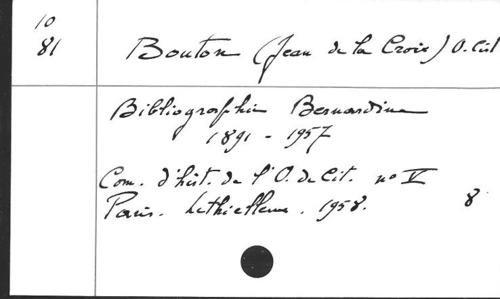 10
81
Bouton (Jean de la Croix) O. Cist
Bibliographie Bernardine
1891 - 1957
Com. d'hist. de l'O. de Cit. no V
Paris. Lethielleux. 1958.
8